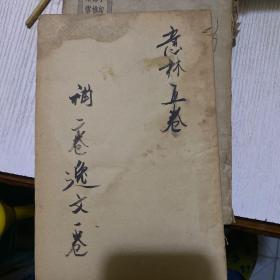 意林五卷
補二卷逸文一卷